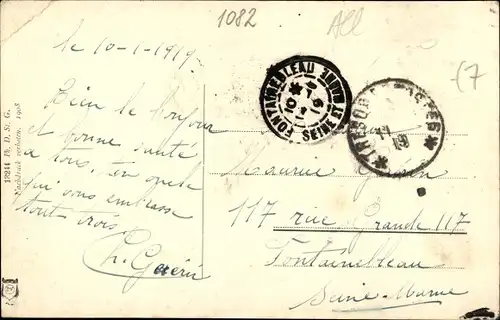 1082
All
(7
le 10-1-1919
Bien le bonjour
et bonne santé
à tous, ton
qui vous embrasse
tout trois.
Ch. Guérin
FONTAINEBLEAU
10
19
SEINE ET MARNE
19
Maurice Guérin
117 rue Grande 117
Fontainebleau
Seine-Marne
17214 Ph. D. St. G.
Nachdruck verboten. 1908